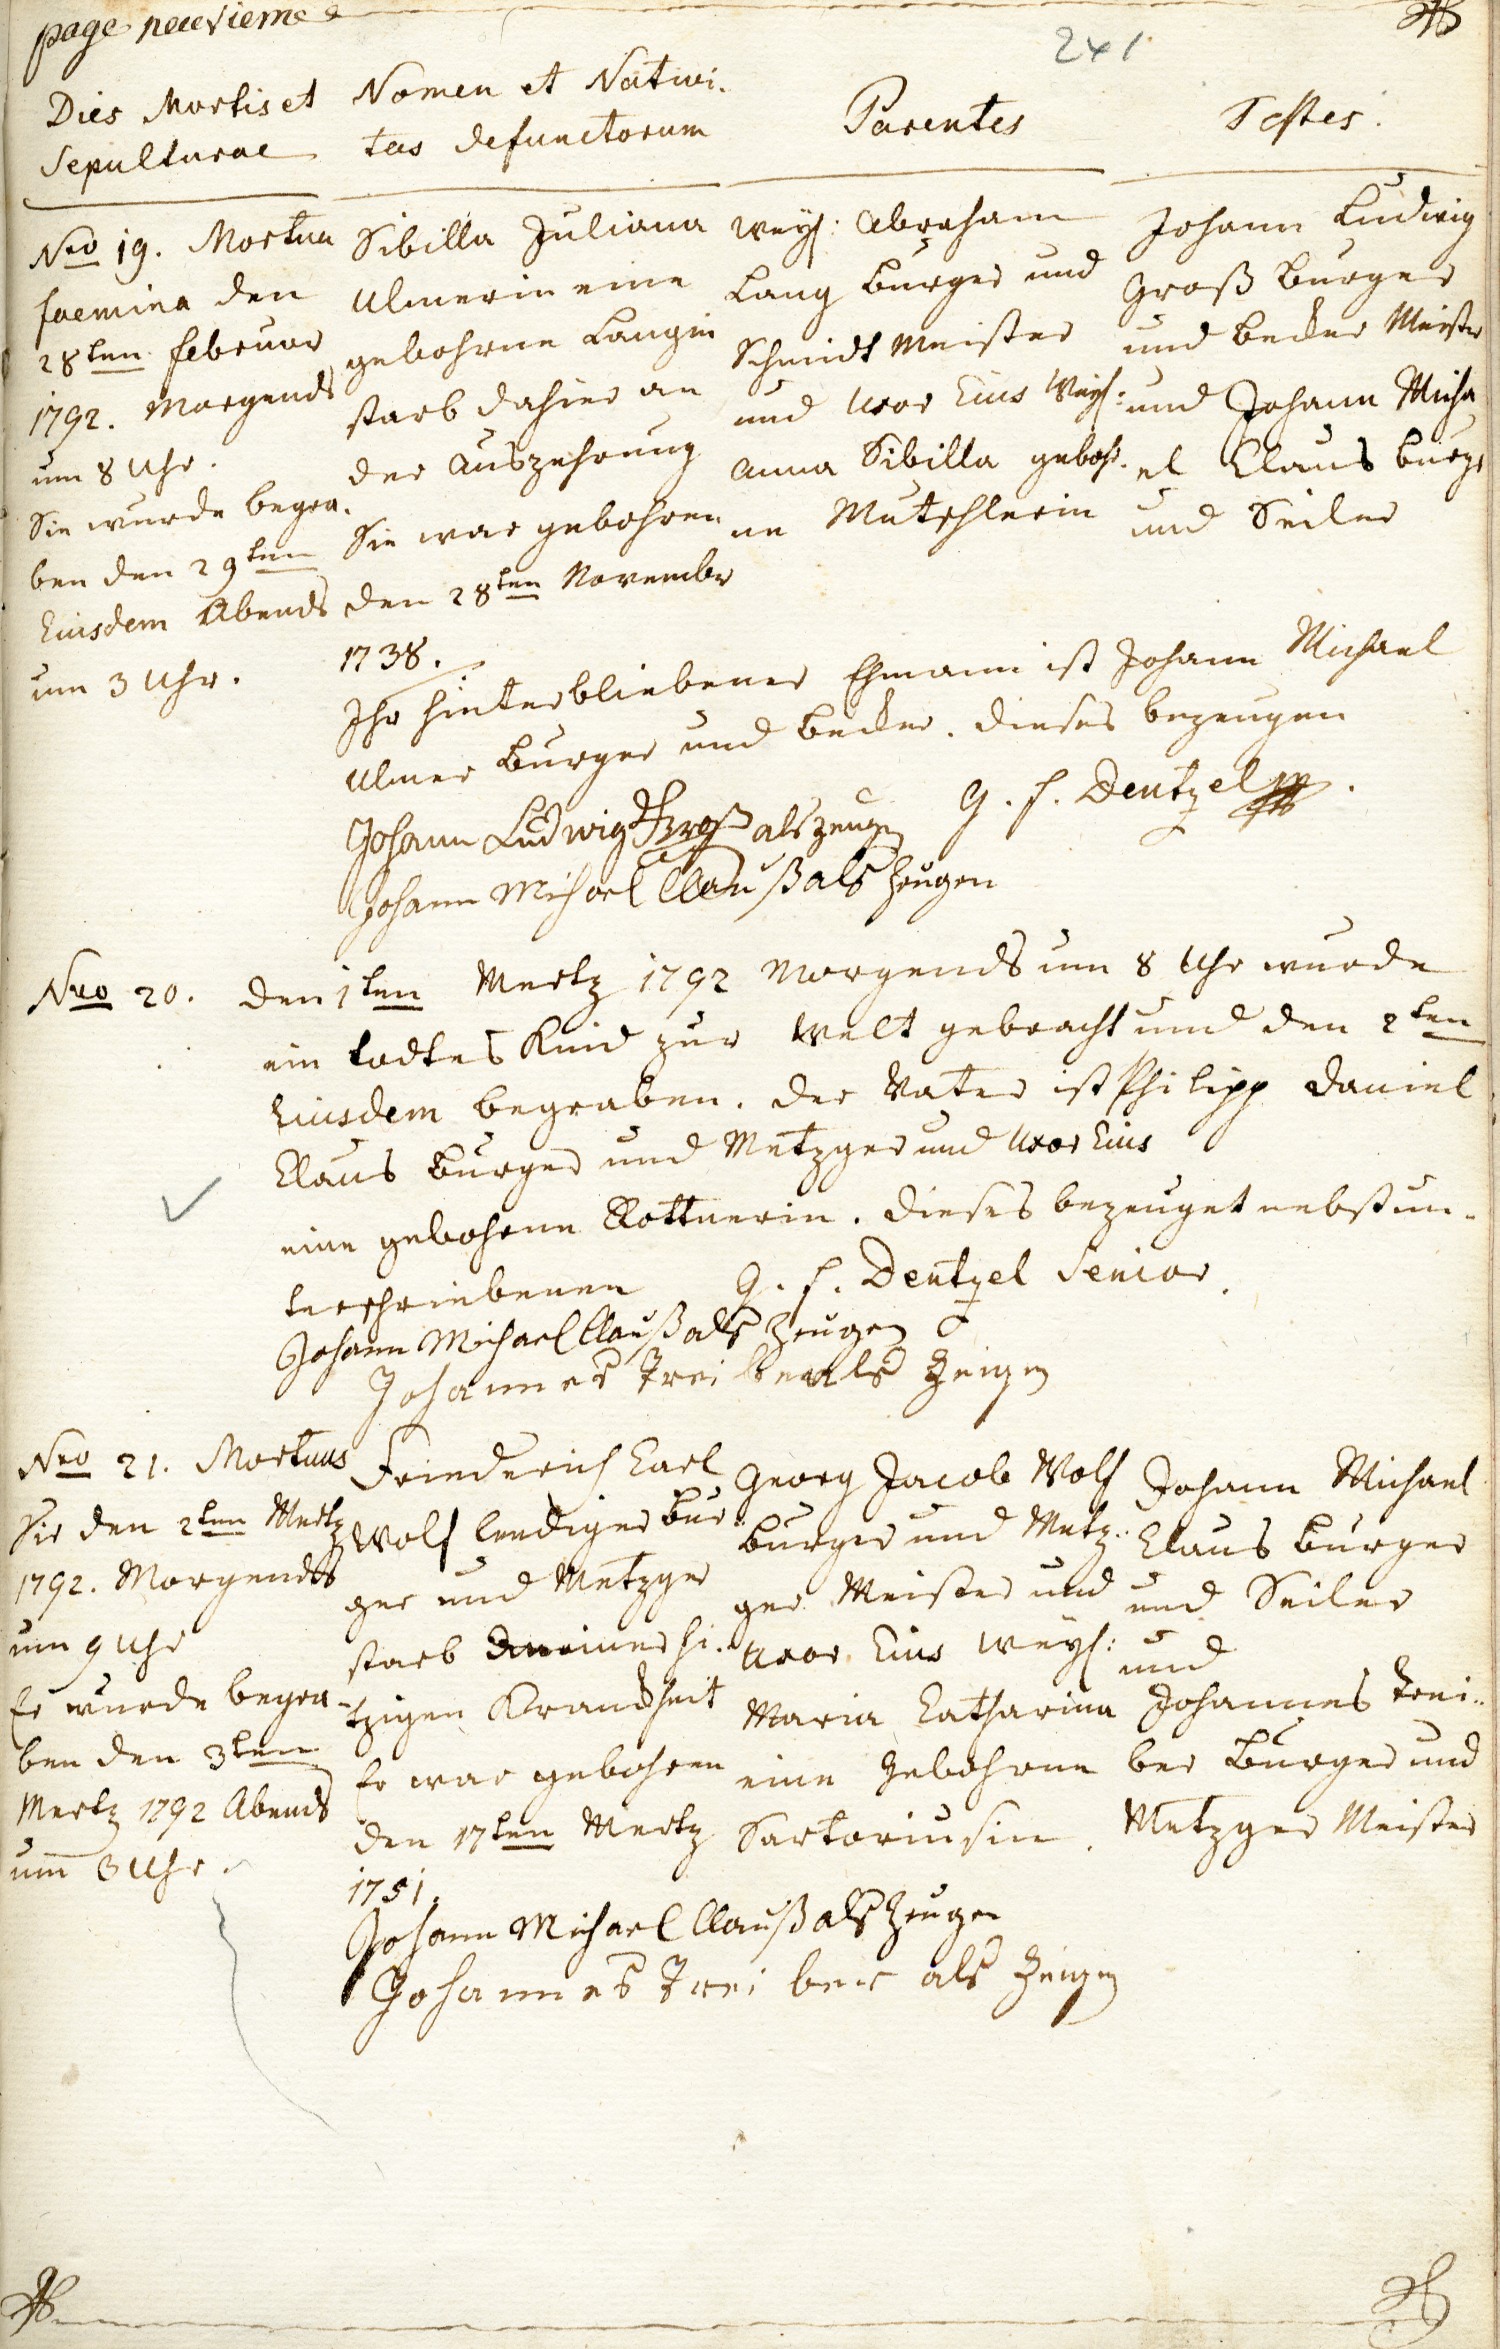 page neuvieme
241
Dies Mortis et
Sepulturae
Nomen et Nativi-
tas defunctorum
Parentes
Testes.
Nro 19. Mortua
faemina den
28ten Februar
1792. Morgends
um 8 Uhr.
Sie wurde begra-
ben den 29ten
Eiusdem Abends
um 3 Uhr.
Sibilla Juliana
Ulmerin eine
gebohrne Langin
starb dahier an
der Auszehrung
Sie war gebohren
den 28ten Novembr
1738.
weyl: Abraham
Lang Burger und
Schmidt Meister
und Uxor Eius Weyl:
Anna Sibilla geboh-
ne Mutschlerin
Johann Ludwig
Groß Burger
und Becker Meister
und Johann Micha
el Claus Burger
und Seiler
Ihr hinterbliebener Ehmann ist Johann Michael
Ulmer Burger und Becker. Dieses bezeugen
G. F. Dentzel
Johann Ludwig Groß als zeugen
Johann Michael Clauß als Zeugen
Nro 20.
den 1ten Mertz 1792 Morgends um 8 Uhr wurde
ein todtes Kind zur Welt gebracht und den 2ten
Eiusdem begraben. Der Vater ist Philipp Daniel
Claus Burger und Metzger und Uxor Eius
eine gebohrne Rottnerin. Dieses bezeuget nebst un-
terschriebenen G. F. Dentzel Senior.
Johann Michael Clauß als Zeugen
Johannes Treiber als Zeigen
Nro 21. Mortuus
Sie den 2ten Mertz
1792. Morgendts
um 9 Uhr
Er wurde begra-
ben den 3ten
Mertz 1792 Abends
um 3 Uhr.
Friederich Carl
Wolf leediger Bur-
ger und Metzger
starb an einer hi-
tzigen Krankheit
Er war gebohren
den 17ten Mertz
1751.
Georg Jacob Wolf
Burger und Metz-
ger Meister und
Uxor Eius Weyl:
Maria Catharina
eine gebohrne
Sartoriusin.
Johann Michael
Claus Burger
und Seiler
und
Johannes Trei-
ber Burger und
Metzger Meister
Johann Michael Clauß als Zeugen
Johannes Treiber als Zeigen